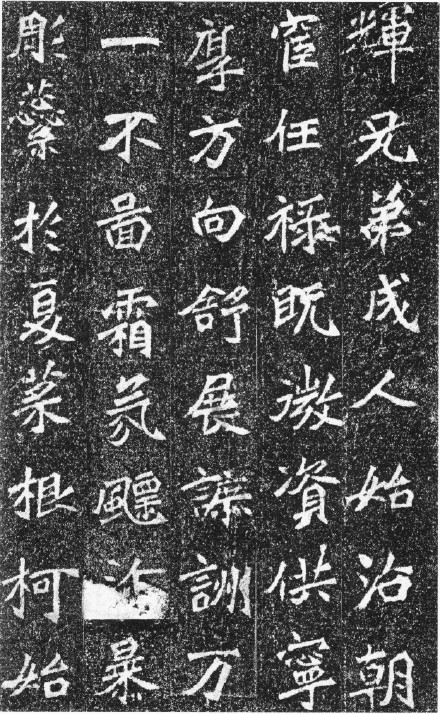 輝兄弟成人始沾朝
宦任禄既微資供寧
厚方向舒展訓万
一不啚霜氛飈暴
彫蘂於夏葉根柯始